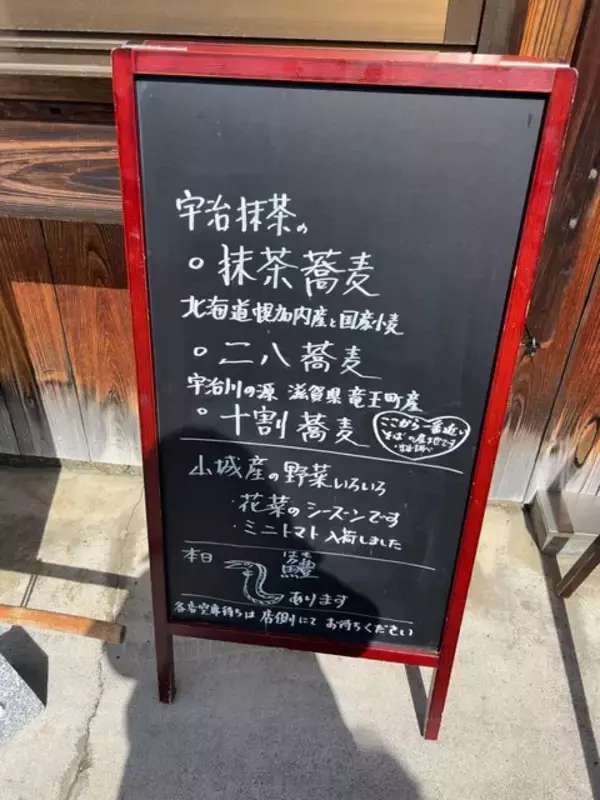 宇治抹茶の
○抹茶蕎麦
北海道幌加内産と国産小麦
○二八蕎麦
宇治川の源 滋賀県竜王町産
○十割蕎麦
ここから一番近い
そばの産地です
山城産の野菜いろいろ
・花菜のシーズンです
・ミニトマト入荷しました
本日
はも
鱧
あります
空席待ちは店側にてお待ちください